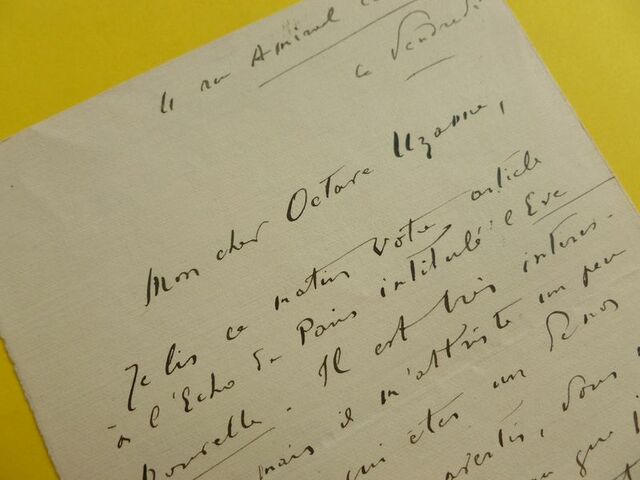 11 rue Amiral
ce Vendredi
Mon cher Octave Uzanne,
Je lis ce matin votre article
à l'Echo de Paris intitulé l'Eve
Nouvelle. Il est très interes-
mais il m'attriste un peu
qui êtes un de nos
avertis, vous
que j